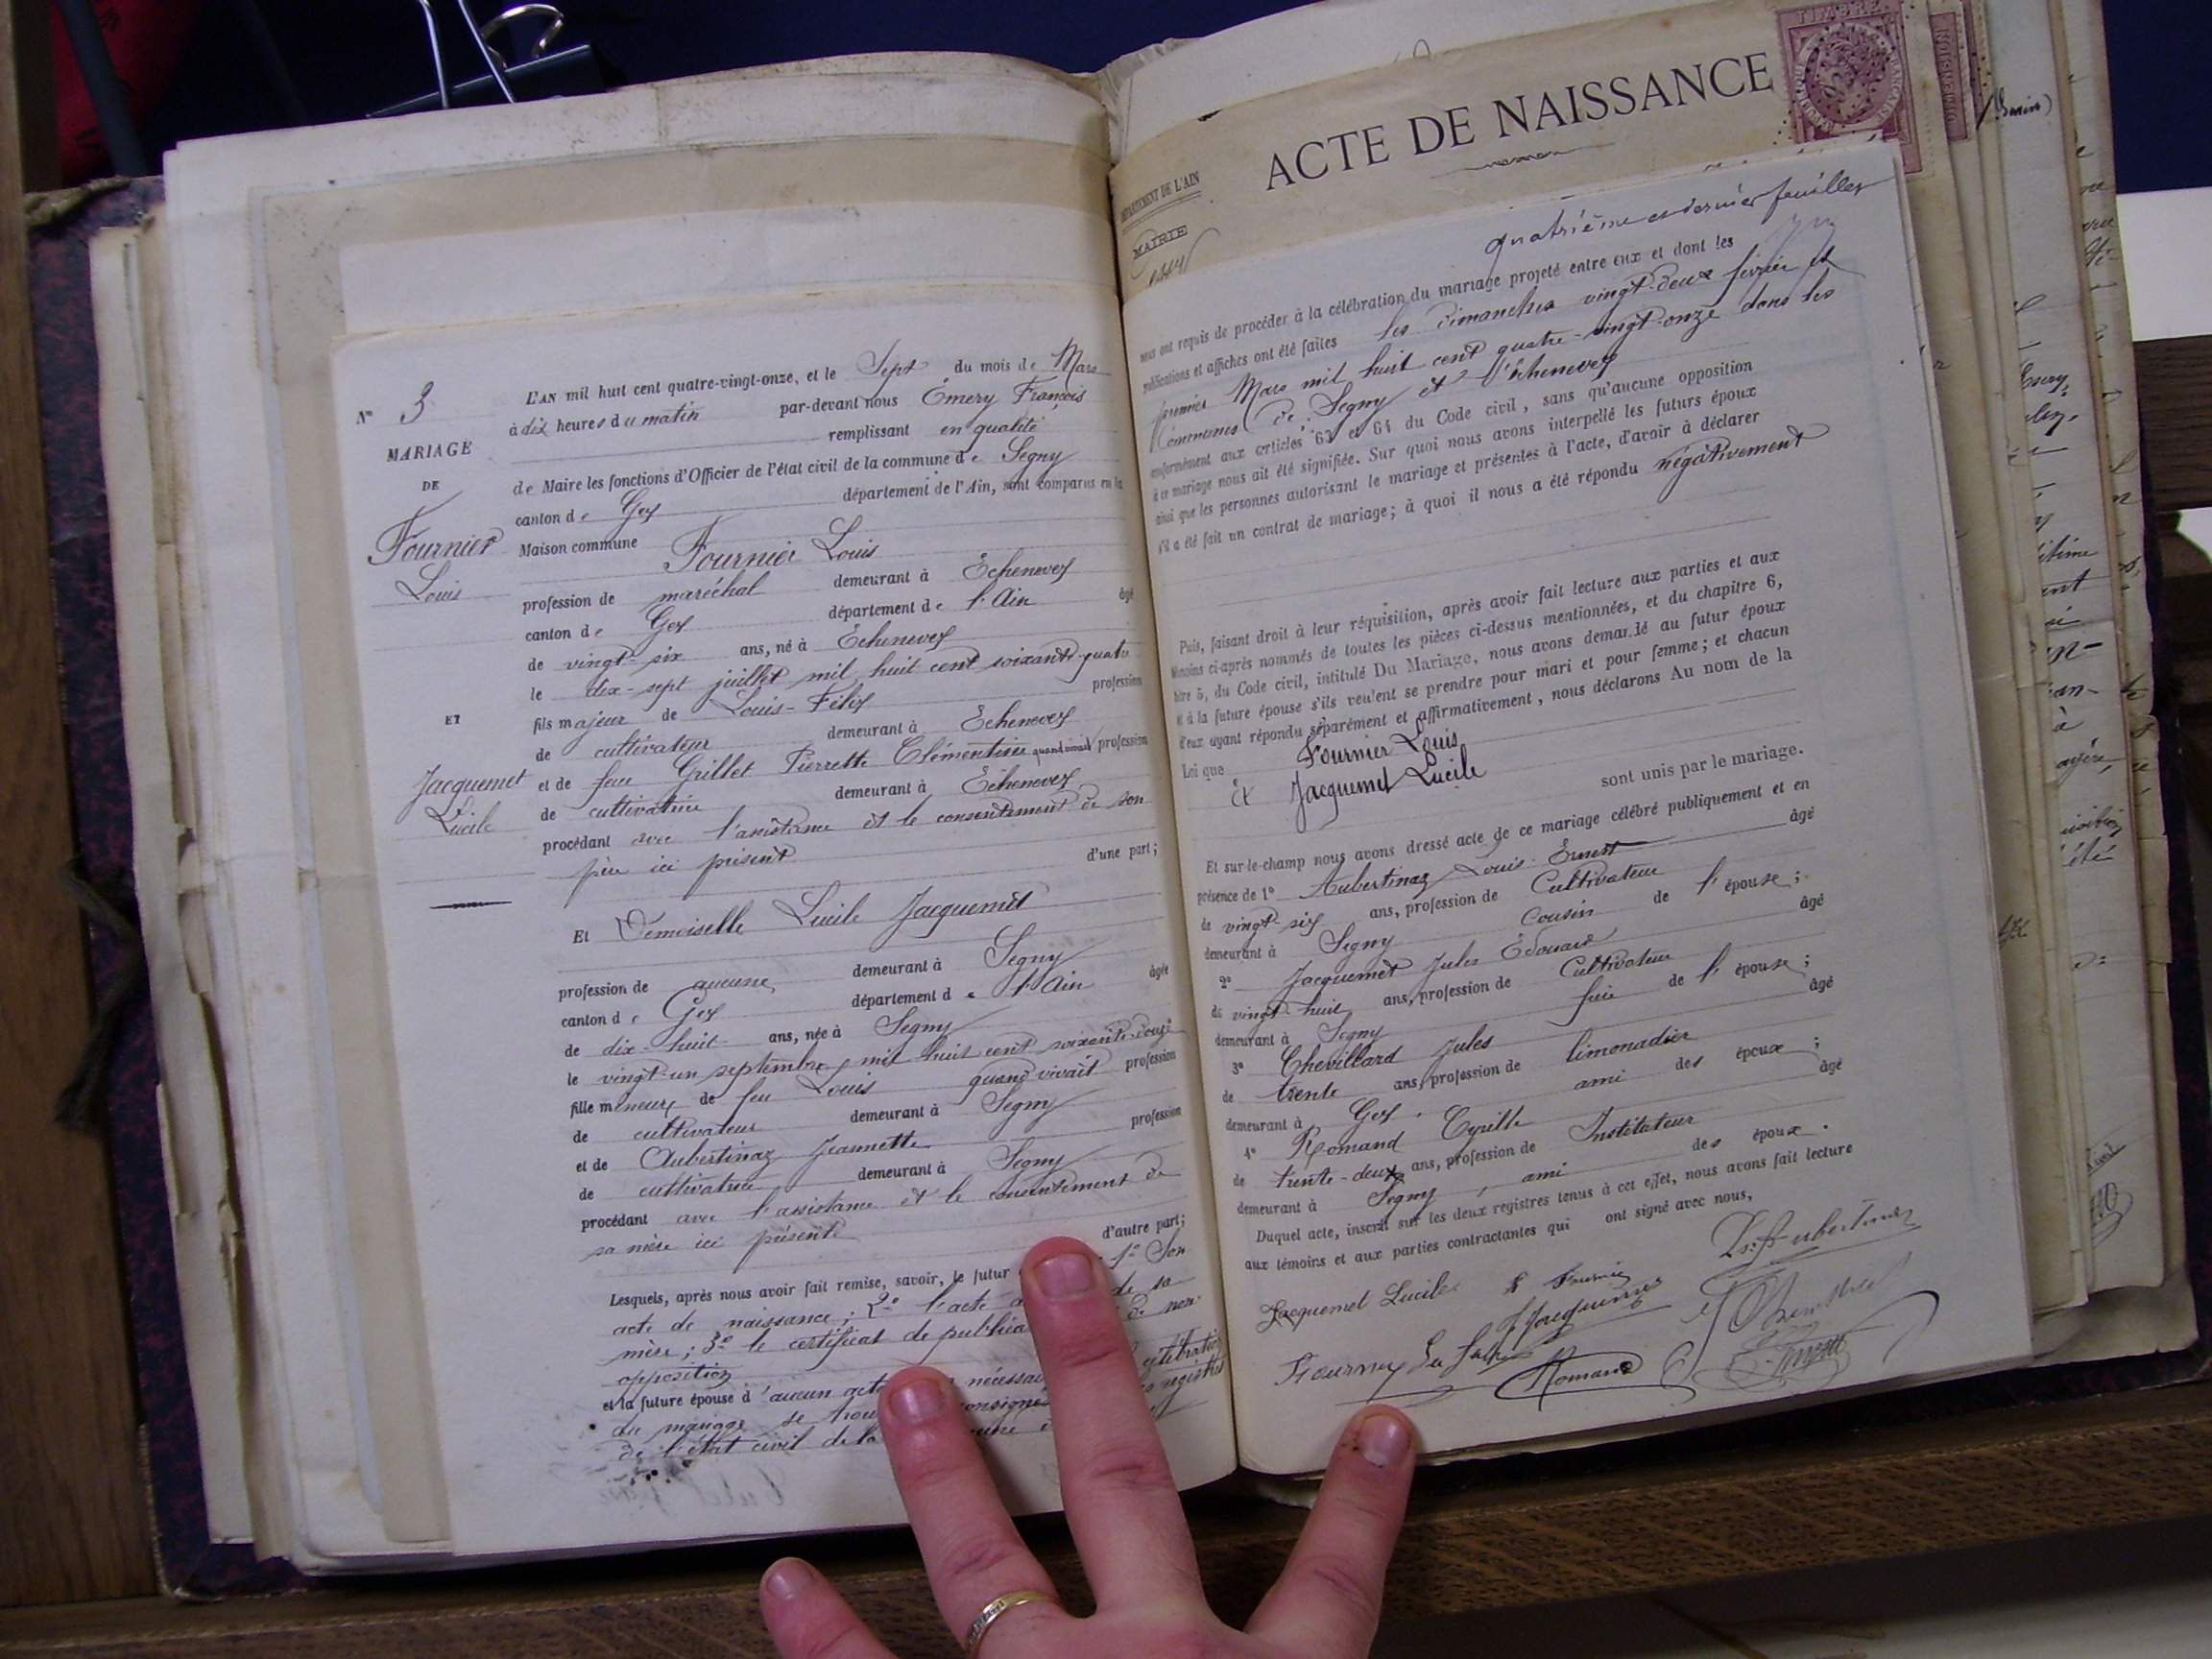 N° 3
MARIAGE
DE
Fournier
Louis
ET
Jacquemet
Lucile
L'AN mil huit cent quatre-vingt-onze, et le Sept du mois de Mars
à dix heures du matin par-devant nous Émery François
remplissant en qualité
de Maire les fonctions d'Officier de l'état civil de la commune de Segny
canton de Gex département de l'Ain, sont comparus en la
Maison commune Fournier Louis
profession de maréchal demeurant à Échenevex
canton de Gex département de l'Ain âgé
de vingt-six ans, né à Échenevex
le dix-sept juillet mil huit cent soixante-quatre
fils majeur de Louis-Félix profession
de cultivateur demeurant à Échenevex
et de feue Grillet Pierrette Clémentine quand vivait profession
de cultivatrice demeurant à Échenevex
procédant avec l'assistance et le consentement de son
père ici présent d'une part;
Et Demoiselle Lucile Jacquemet
profession de aucune demeurant à Segny
canton de Gex département de l'Ain âgée
de dix-huit ans, née à Segny
le vingt-un septembre mil huit cent soixante-douze
fille mineure de feu Louis quand vivait profession
de cultivateur demeurant à Segny
et de Aubertinaz Jeannette profession
de cultivatrice demeurant à Segny
procédant avec l'assistance et le consentement de
sa mère ici présente d'autre part;
Lesquels, après nous avoir fait remise, savoir, le futur 1° Son
acte de naissance; 2° l'acte de sa
mère; 3° le certificat de de non
opposition
et la future épouse d'aucun célébration
du mariage se registres
de l'état civil de la
ACTE DE NAISSANCE
DÉPARTEMENT DE L'AIN
MAIRIE
TIMBRE
quatrième et dernier feuillet
nous ont requis de procéder à la célébration du mariage projeté entre eux et dont les
publications et affiches ont été faites les dimanches vingt-deux février et
premier Mars mil huit cent quatre-vingt-onze dans les
communes de Segny et d'Échenevex
conformément aux articles 63 et 64 du Code civil, sans qu'aucune opposition
à ce mariage nous ait été signifiée. Sur quoi nous avons interpellé les futurs époux
ainsi que les personnes autorisant le mariage et présentes à l'acte, d'avoir à déclarer
s'il a été fait un contrat de mariage; à quoi il nous a été répondu négativement
Puis, faisant droit à leur réquisition, après avoir fait lecture aux parties et aux
témoins ci-après nommés de toutes les pièces ci-dessus mentionnées, et du chapitre 6,
titre 5, du Code civil, intitulé Du Mariage, nous avons demandé au futur époux
et à la future épouse s'ils veulent se prendre pour mari et pour femme; et chacun
d'eux ayant répondu séparément et affirmativement, nous déclarons Au nom de la
Loi que Fournier Louis
et Jacquemet Lucile sont unis par le mariage.
Et sur-le-champ nous avons dressé acte de ce mariage célébré publiquement et en
présence de 1° Aubertinaz Louis Ernest âgé
de vingt-six ans, profession de Cultivateur
demeurant à Segny cousin de l'épouse;
2° Jacquemet Jules Édouard âgé
de vingt-huit ans, profession de Cultivateur
demeurant à Segny frère de l'épouse;
3° Chevillard Jules âgé
de trente ans, profession de limonadier
demeurant à Gex ami des époux;
4° Romand Cyrille âgé
de trente-deux ans, profession de Instituteur
demeurant à Segny, ami des époux.
Duquel acte, inscrit sur les deux registres tenus à cet effet, nous avons fait lecture
aux témoins et aux parties contractantes qui ont signé avec nous,
Jacquemet Lucile L Fournier Ls. Aubertinaz
Romand